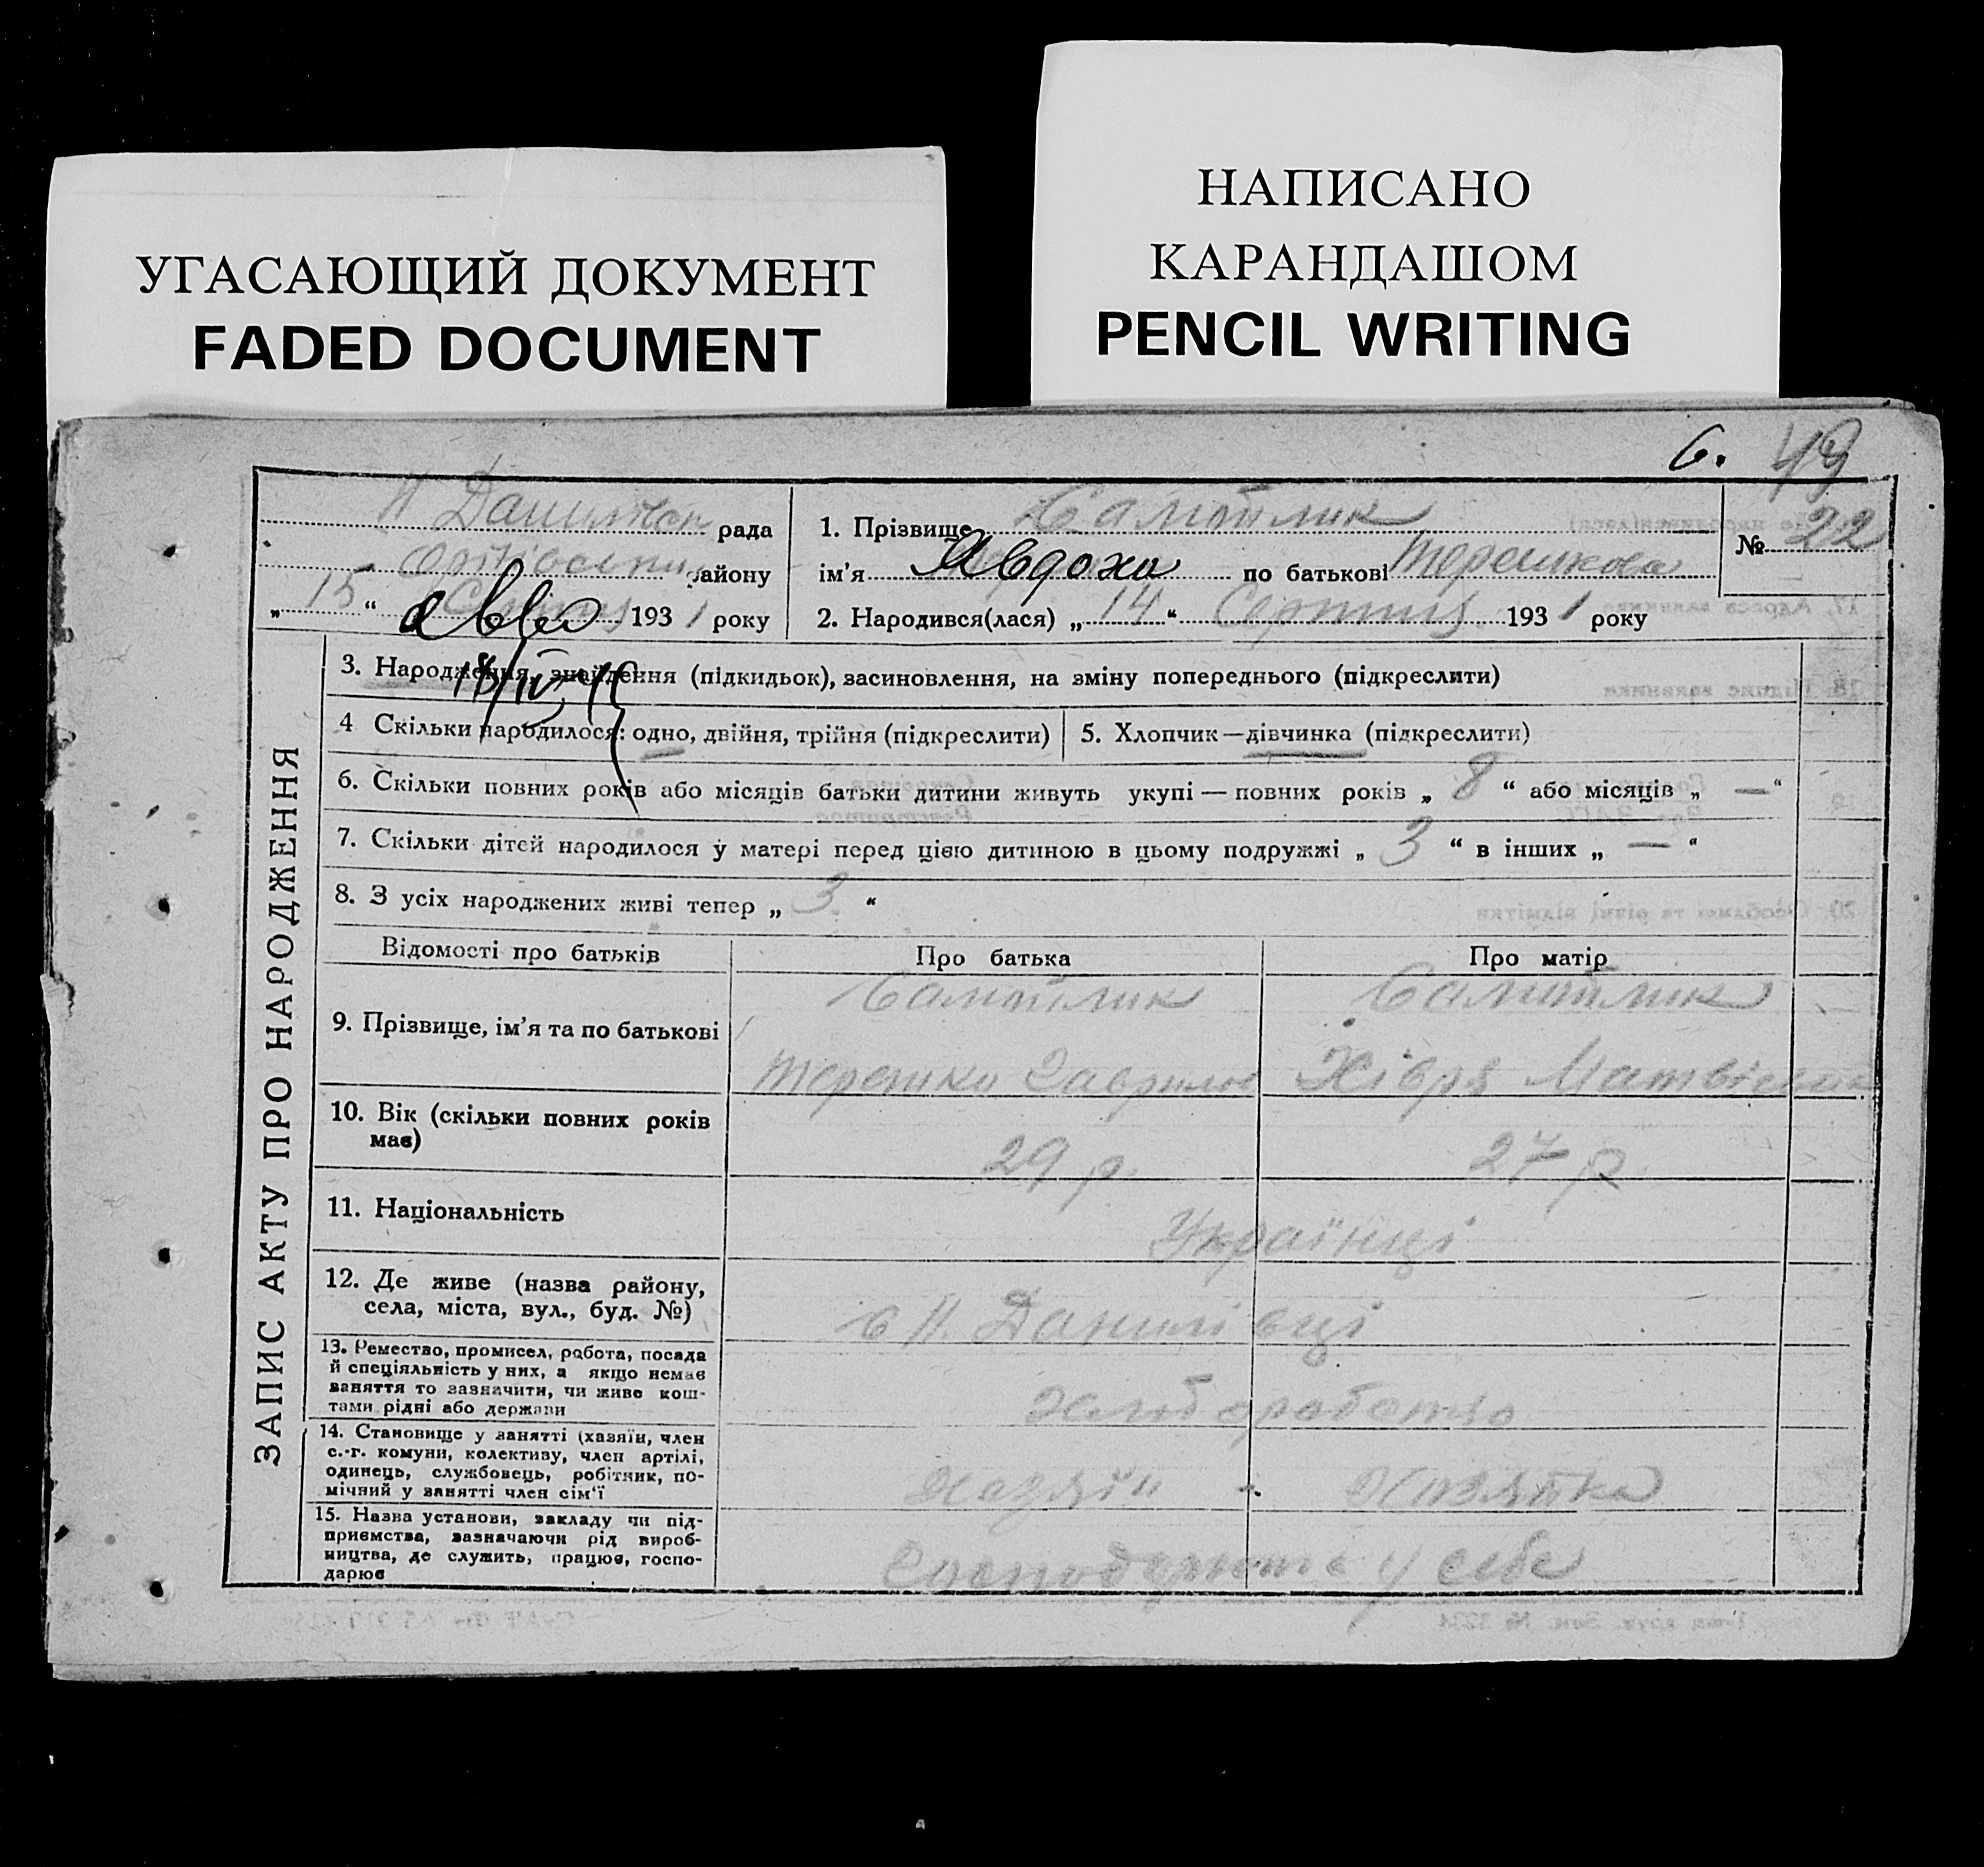 УГАСАЮЩИЙ ДОКУМЕНТ
FADED DOCUMENT
НАПИСАНО
КАРАНДАШОМ
PENCIL WRITING
6. 49
рада
району
„ 15 “ Серпня 1931 року
1. Прізвище
ім'я Явдоха по батькові Терешкова
2. Народився(лася) „ 14 “ Серпня 1931 року
№ 22
ЗАПИС АКТУ ПРО НАРОДЖЕННЯ
3. Народження, знайдення (підкидьок), засиновлення, на зміну попереднього (підкреслити)
4 Скільки народилося: одно, двійня, трійня (підкреслити)
5. Хлопчик—дівчинка (підкреслити)
6. Скільки повних років або місяців батьки дитини живуть укупі — повних років „ 8 “ або місяців „ — “
7. Скільки дітей народилося у матері перед цією дитиною в цьому подружжі „ 3 “ в інших „ — “
8. З усіх народжених живі тепер „ 3 “
Відомості про батьків
Про батька
Про матір
9. Прізвище, ім'я та по батькові
Терешко Гаврилов
Хівря Матвієвна
10. Вік (скільки повних років
має)
29 р.
27 р
11. Національність
Українці
12. Де живе (назва району,
села, міста, вул., буд. №)
с Н. Данилівці
13. Ремество, промисел, робота, посада
й спеціяльність у них, а якщо немає
заняття то зазначити, чи живе кош-
тами рідні або держави
хліборобство
14. Становище у занятті (хазяїн, член
с.-г. комуни, колективу, член артілі,
одинець, службовець, робітник, по-
мічний у занятті член сім'ї
Хазяїн - Хазяйка
15. Назва установи, закладу чи під-
приємства, зазначаючи рід вироб-
ництва, де служить, працює, госпо-
дарює
Господарюють у себе